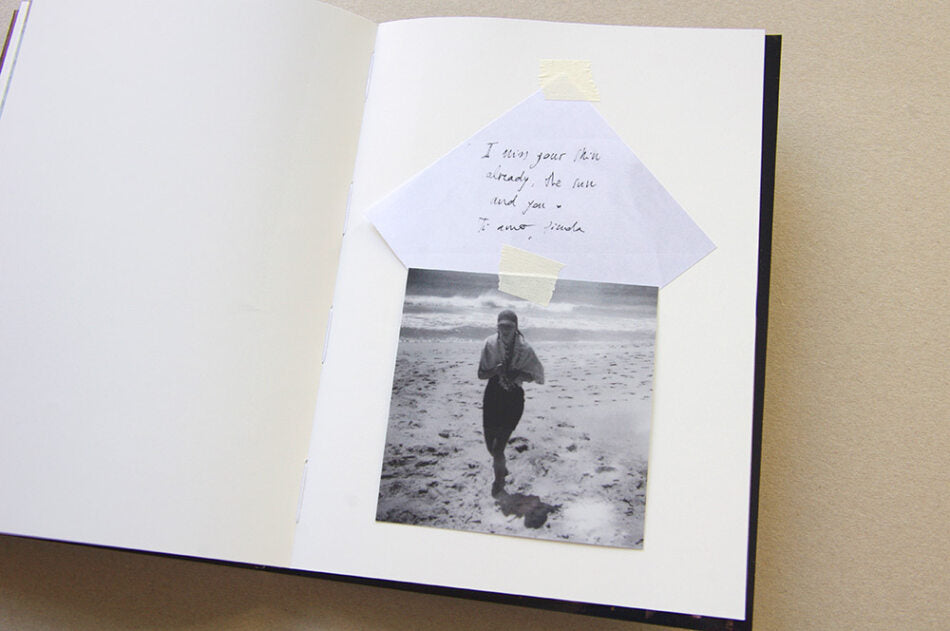 I miss your skin
already, the sun
and you.
Ti amo,